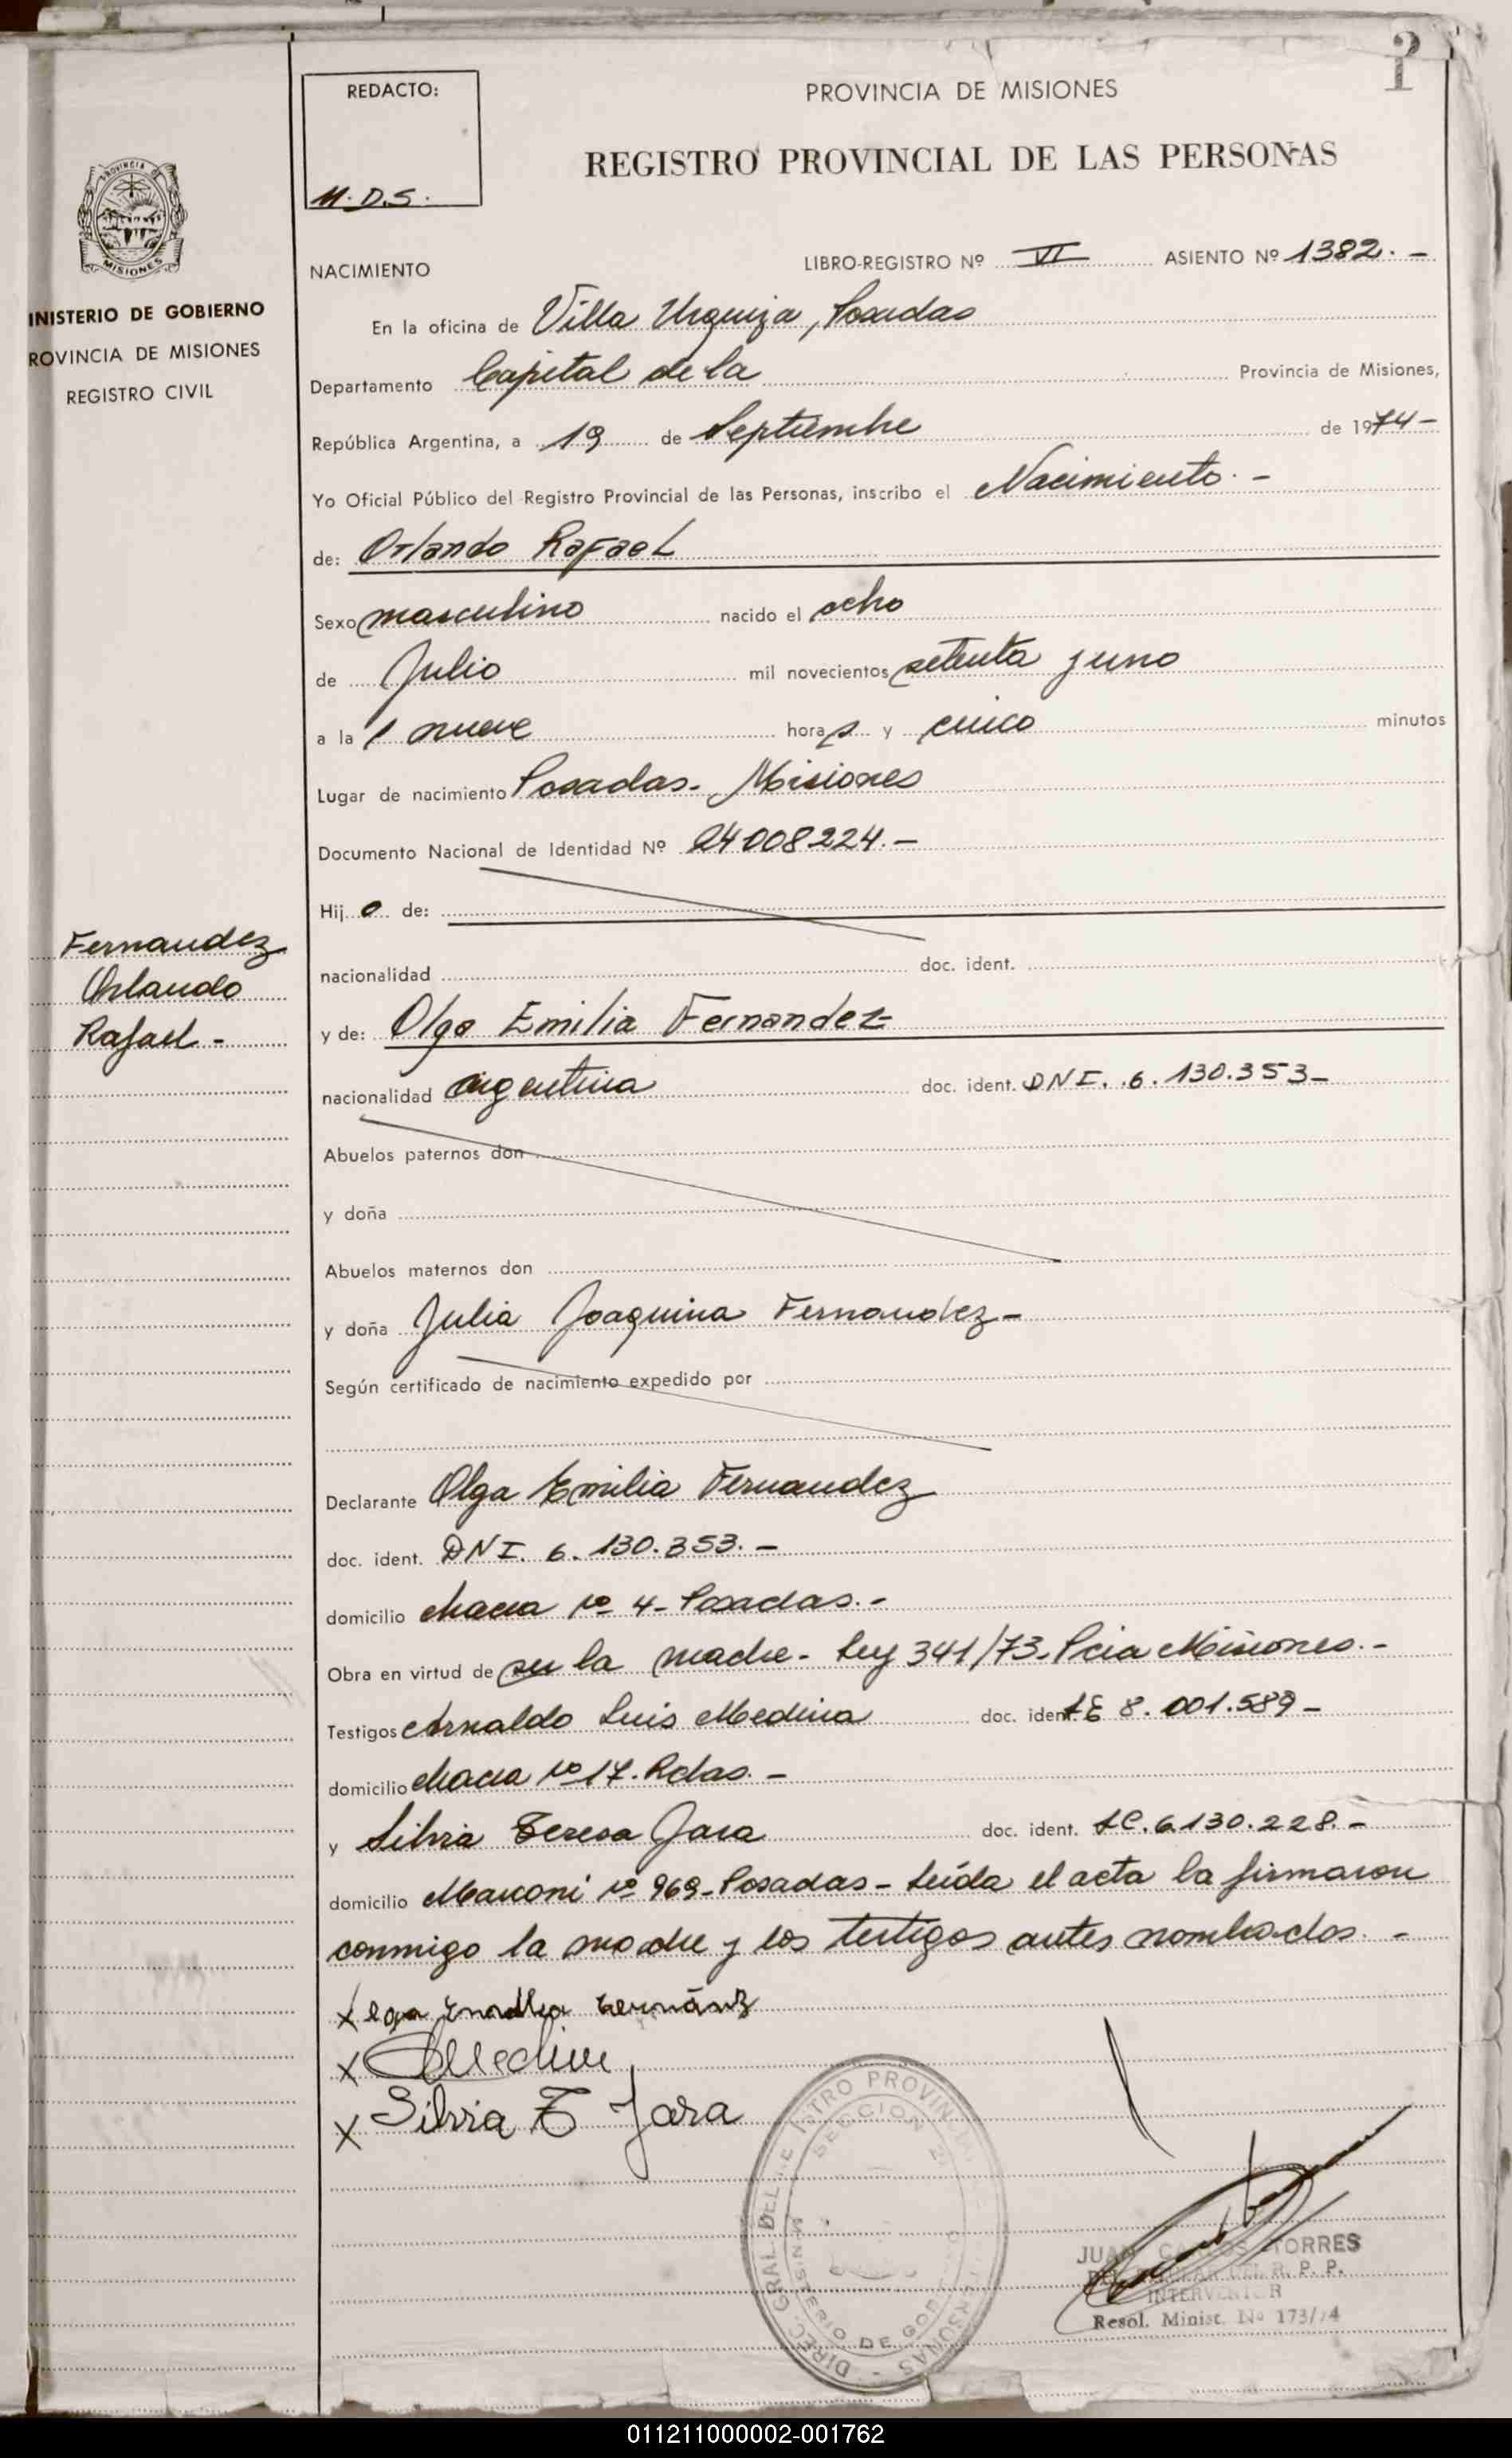 1
REDACTO:
M.D.S.
PROVINCIA DE MISIONES
REGISTRO PROVINCIAL DE LAS PERSONAS
PROVINCIA DE
MISIONES
INISTERIO DE GOBIERNO
ROVINCIA DE MISIONES
REGISTRO CIVIL
NACIMIENTO
LIBRO-REGISTRO Nº VI ASIENTO Nº 1382.-
En la oficina de Villa Urquiza, Posadas
Departamento Capital de la Provincia de Misiones,
República Argentina, a 19 de Septiembre de 1974-
Yo Oficial Público del Registro Provincial de las Personas, inscribo el Nacimiento.-
de: Orlando Rafael
Sexo masculino nacido el ocho
de Julio mil novecientos setenta y uno
a la s nueve hora s y cinco minutos
Lugar de nacimiento Posadas- Misiones
Documento Nacional de Identidad Nº 24008224.-
Hij o de:
nacionalidad doc. ident.
y de: Olga Emilia Fernandez
nacionalidad argentina doc. ident. DNI. 6.130.353-
Abuelos paternos don
y doña
Abuelos maternos don
y doña Julia Joaquina Fernandez-
Según certificado de nacimiento expedido por
Declarante Olga Emilia Fernandez
doc. ident. DNI. 6.130.353.-
domicilio chacra nº 4- Posadas.-
Obra en virtud de ser la madre- Ley 341/73- Pcia Misiones.-
Testigos Arnaldo Luis Medina doc. ident. LE 8.001.589-
domicilio chacra nº 17. Pdas.-
y Silvia Teresa Jara doc. ident. LC. 6.130.228.-
domicilio Marconi nº 969- Posadas- Leída el acta la firmaron
conmigo la madre y los testigos antes nombrados.-
Fernandez
Orlando
Rafael-
X
X Medina
X Silvia T Jara
DIREC. GRAL. DEL PROVIN
SECCION
MINISTERIO DE GOB
JUAN CARLOS TORRES
DEL R. P. P.
INTERVENTOR
Resol. Minist. Nº 173/74
011211000002-001762